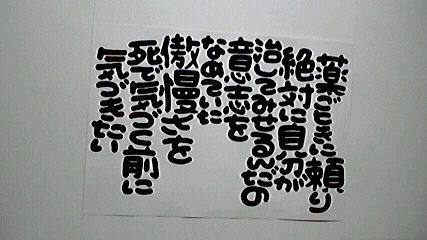 薬ごときに頼り
絶対に自分が
治してみせるんだの
意志を
なめていた
傲慢さを
死で気づく前に
気づきたい